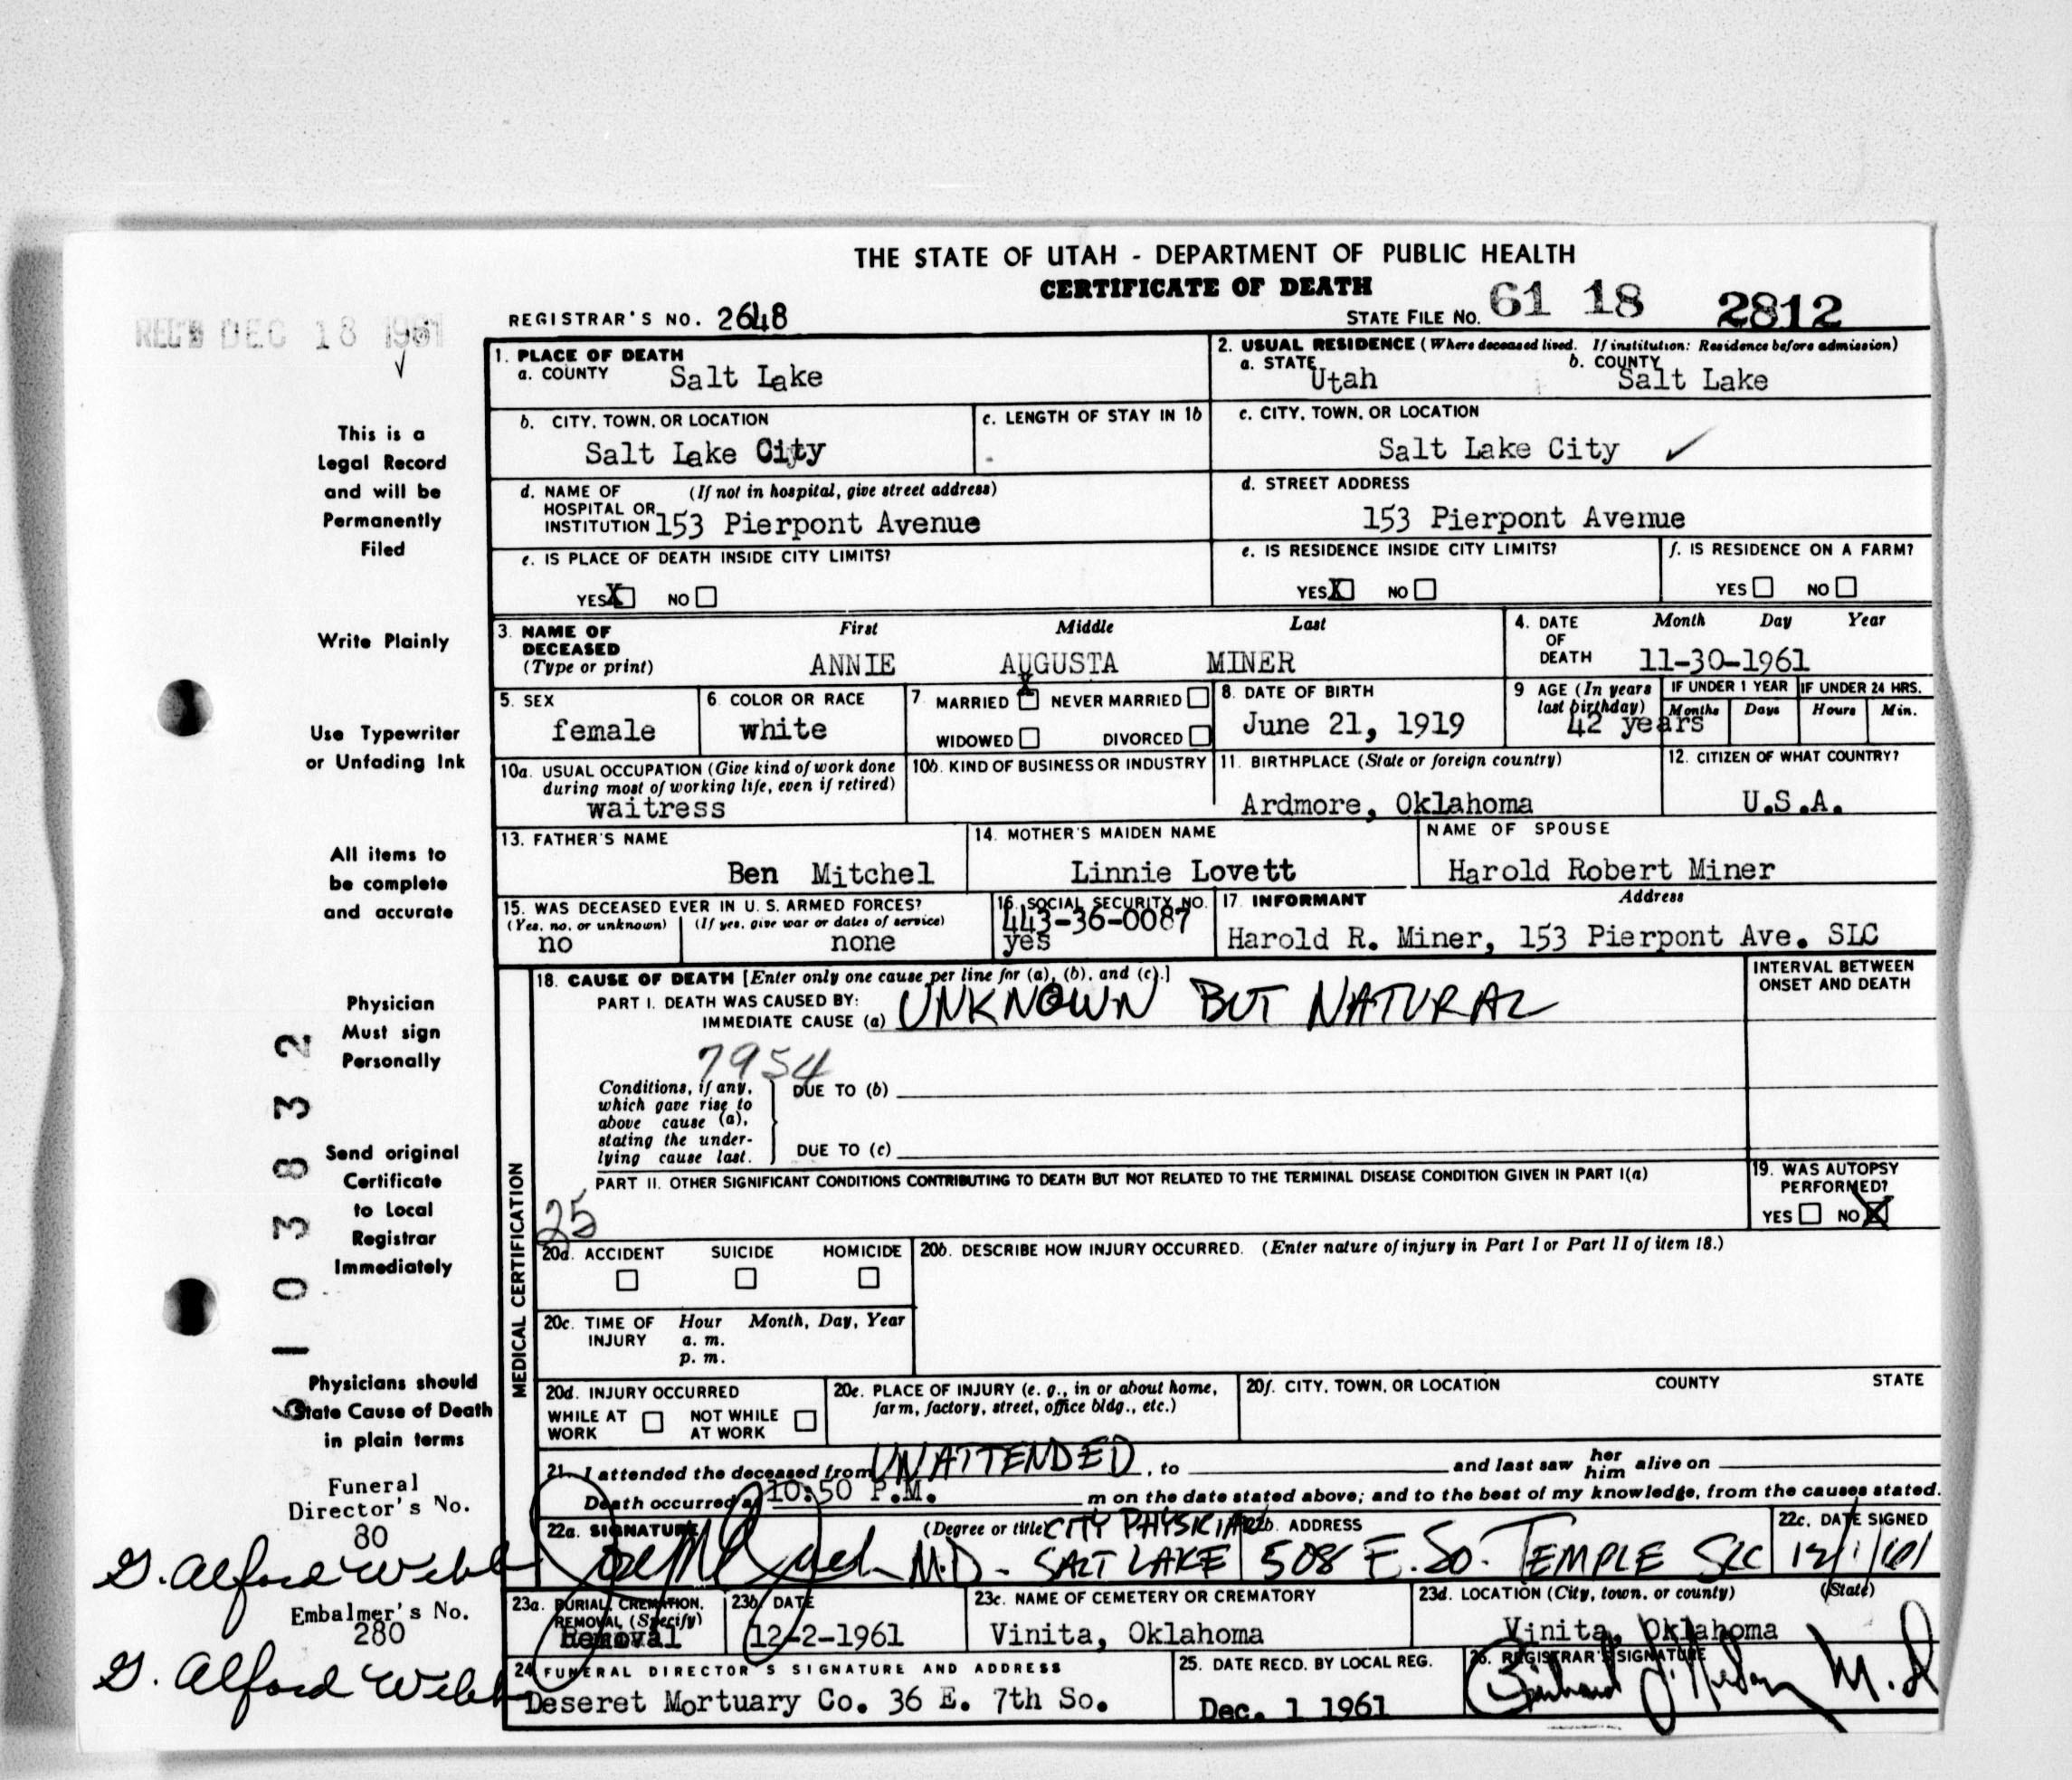 THE STATE OF UTAH - DEPARTMENT OF PUBLIC HEALTH
CERTIFICATE OF DEATH
REGISTRAR'S NO. 2648
STATE FILE NO. 61 18 2812
REC'D DEC 18 1961
1. PLACE OF DEATH
a. COUNTY Salt Lake
2. USUAL RESIDENCE (Where deceased lived. If institution: Residence before admission)
a. STATE Utah b. COUNTY Salt Lake
b. CITY, TOWN, OR LOCATION
Salt Lake City
c. LENGTH OF STAY IN 1b
c. CITY, TOWN, OR LOCATION
Salt Lake City
d. NAME OF (If not in hospital, give street address)
HOSPITAL OR
INSTITUTION 153 Pierpont Avenue
d. STREET ADDRESS
153 Pierpont Avenue
e. IS PLACE OF DEATH INSIDE CITY LIMITS?
YES X NO
e. IS RESIDENCE INSIDE CITY LIMITS?
YES X NO
f. IS RESIDENCE ON A FARM?
YES NO
3. NAME OF DECEASED (Type or print)
First Middle Last
ANNIE AUGUSTA MINER
4. DATE OF DEATH
Month Day Year
11-30-1961
5. SEX
female
6. COLOR OR RACE
white
7. MARRIED X NEVER MARRIED
WIDOWED DIVORCED
8. DATE OF BIRTH
June 21, 1919
9 AGE (In years last birthday)
42 years
IF UNDER 1 YEAR
Months Days
IF UNDER 24 HRS.
Hours Min.
10a. USUAL OCCUPATION (Give kind of work done
during most of working life, even if retired)
waitress
10b. KIND OF BUSINESS OR INDUSTRY
11. BIRTHPLACE (State or foreign country)
Ardmore, Oklahoma
12. CITIZEN OF WHAT COUNTRY?
U.S.A.
13. FATHER'S NAME
Ben Mitchel
14. MOTHER'S MAIDEN NAME
Linnie Lovett
NAME OF SPOUSE
Harold Robert Miner
15. WAS DECEASED EVER IN U. S. ARMED FORCES?
(Yes, no, or unknown) (If yes, give war or dates of service)
no none
16. SOCIAL SECURITY NO.
443-36-0087
yes
17. INFORMANT Address
Harold R. Miner, 153 Pierpont Ave. SLC
MEDICAL CERTIFICATION
18. CAUSE OF DEATH [Enter only one cause per line for (a), (b), and (c).]
PART I. DEATH WAS CAUSED BY:
IMMEDIATE CAUSE (a) UNKNOWN BUT NATURAL
INTERVAL BETWEEN
ONSET AND DEATH
7954
Conditions, if any,
which gave rise to
above cause (a),
stating the under-
lying cause last.
DUE TO (b)
DUE TO (c)
PART II. OTHER SIGNIFICANT CONDITIONS CONTRIBUTING TO DEATH BUT NOT RELATED TO THE TERMINAL DISEASE CONDITION GIVEN IN PART I(a)
25
19. WAS AUTOPSY
PERFORMED?
YES NO X
20a. ACCIDENT SUICIDE HOMICIDE
20b. DESCRIBE HOW INJURY OCCURRED. (Enter nature of injury in Part I or Part II of item 18.)
20c. TIME OF INJURY
Hour Month, Day, Year
a. m.
p. m.
20d. INJURY OCCURRED
WHILE AT WORK NOT WHILE AT WORK
20e. PLACE OF INJURY (e. g., in or about home,
farm, factory, street, office bldg., etc.)
20f. CITY, TOWN, OR LOCATION COUNTY STATE
21. I attended the deceased from UNATTENDED, to and last saw her him alive on
Death occurred at 10:50 P.M. m on the date stated above; and to the best of my knowledge, from the causes stated.
22a. SIGNATURE (Degree or title) CITY PHYSICIAN
M.D. - SALT LAKE
22b. ADDRESS
508 E. So. TEMPLE SLC
22c. DATE SIGNED
12/1/61
23a. BURIAL, CREMATION,
REMOVAL (Specify)
Removal
23b. DATE
12-2-1961
23c. NAME OF CEMETERY OR CREMATORY
Vinita, Oklahoma
23d. LOCATION (City, town, or county) (State)
Vinita, Oklahoma
24. FUNERAL DIRECTOR'S SIGNATURE AND ADDRESS
Deseret Mortuary Co. 36 E. 7th So.
25. DATE RECD. BY LOCAL REG.
Dec. 1 1961
26. REGISTRAR'S SIGNATURE
M.D
This is a
Legal Record
and will be
Permanently
Filed
Write Plainly
Use Typewriter
or Unfading Ink
All items to
be complete
and accurate
Physician
Must sign
Personally
Send original
Certificate
to Local
Registrar
Immediately
Physicians should
State Cause of Death
in plain terms
Funeral
Director's No.
80
G. Alford Webb
Embalmer's No.
280
G. Alford Webb
6103832